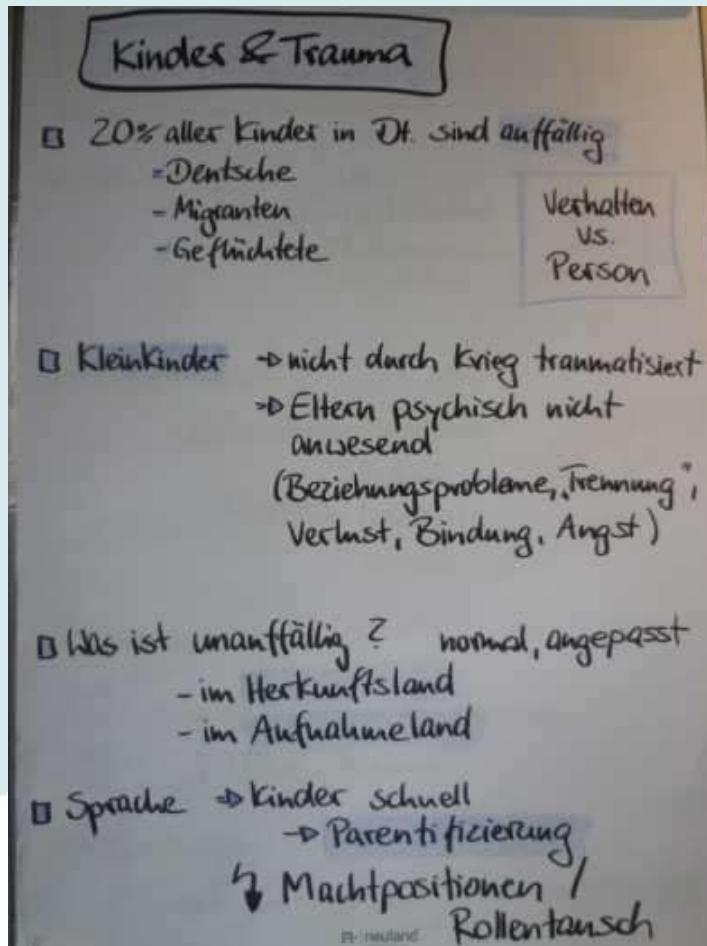 Kinder & Trauma
20% aller Kinder in Dt. sind auffällig
- Deutsche
- Migranten
- Geflüchtete
Verhalten
vs.
Person
Kleinkinder → nicht durch Krieg traumatisiert
→ Eltern psychisch nicht
anwesend
(Beziehungsprobleme, „Trennung“,
Verlust, Bindung, Angst)
Was ist unauffällig? normal, angepasst
- im Herkunftsland
- im Aufnahmeland
Sprache → Kinder schnell
→ Parentifizierung
↯ Machtpositionen /
Rollentausch
neuland